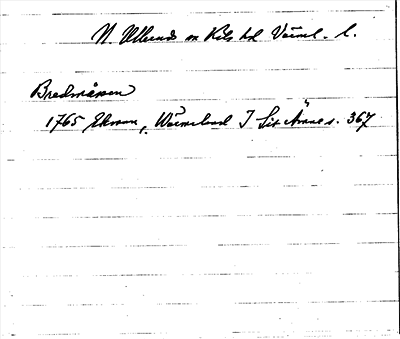 N. Ullerud sn Kils hd Värml. l.
Bredmåsen
1765 Ekman, Wärmeland I Sit Ämne s. 367